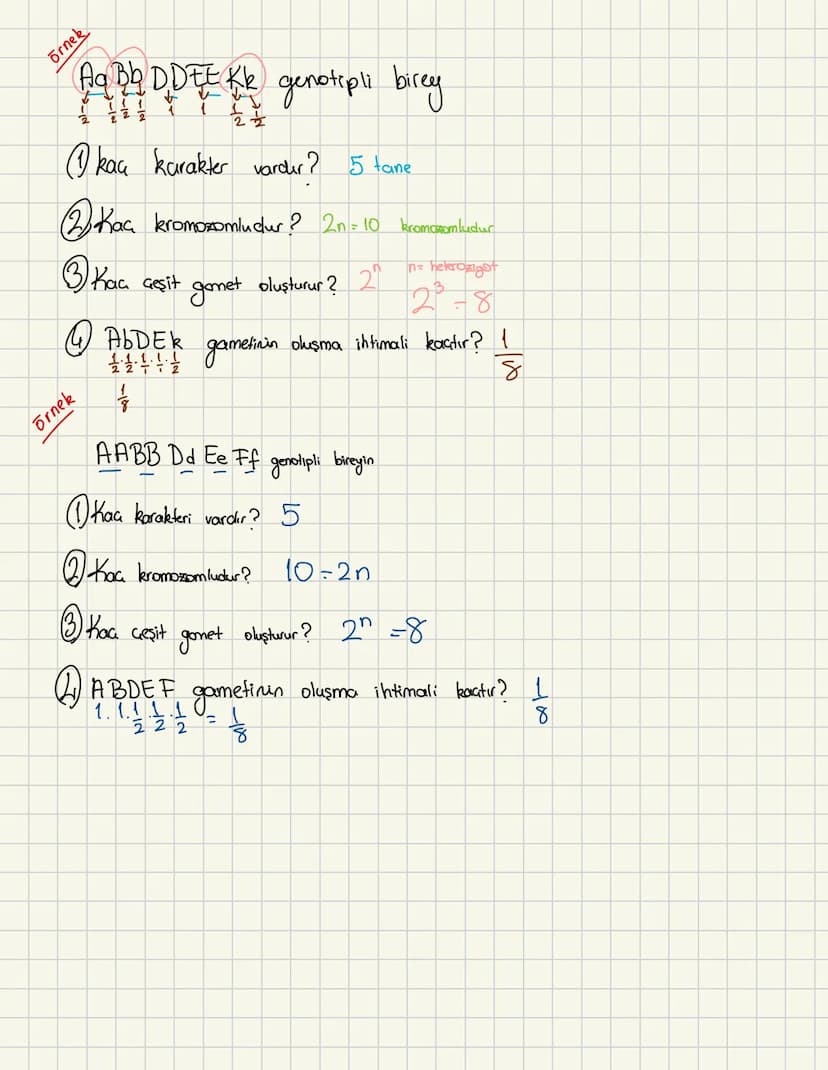 örnek
Aa Bb DDEE Kk genotipli birey
1/2 1/2 1/2 1/2 1 1 1/2 1/2
① kaç karakter vardır? 5 tane
② Kaç kromozomludur? 2n = 10 kromozomludur
③ Kaç çeşit gamet oluşturur? 2ⁿ n = heterozigot
2³ = 8
④ AbDEk gametinin oluşma ihtimali kaçtır? 1/8
1/2 · 1/2 · 1/1 · 1/1 · 1/2
1/8
örnek
AABB Dd Ee Ff genotipli bireyin
① Kaç karakteri vardır? 5
② Kaç kromozomludur? 10 = 2n
③ Kaç çeşit gamet oluşturur? 2ⁿ = 8
④ ABDEF gametinin oluşma ihtimali kaçtır? 1/8
1 . 1 . 1/2 . 1/2 . 1/2 = 1/8